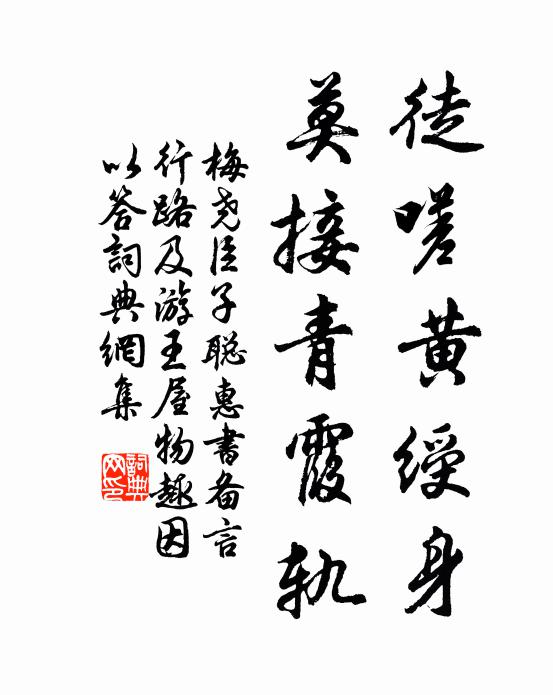 徒嗟黄綬身
莫接青霞軌
梅尧臣子聪惠書备言
行路及游王屋物趣因
以答詞典網集
詞典网印